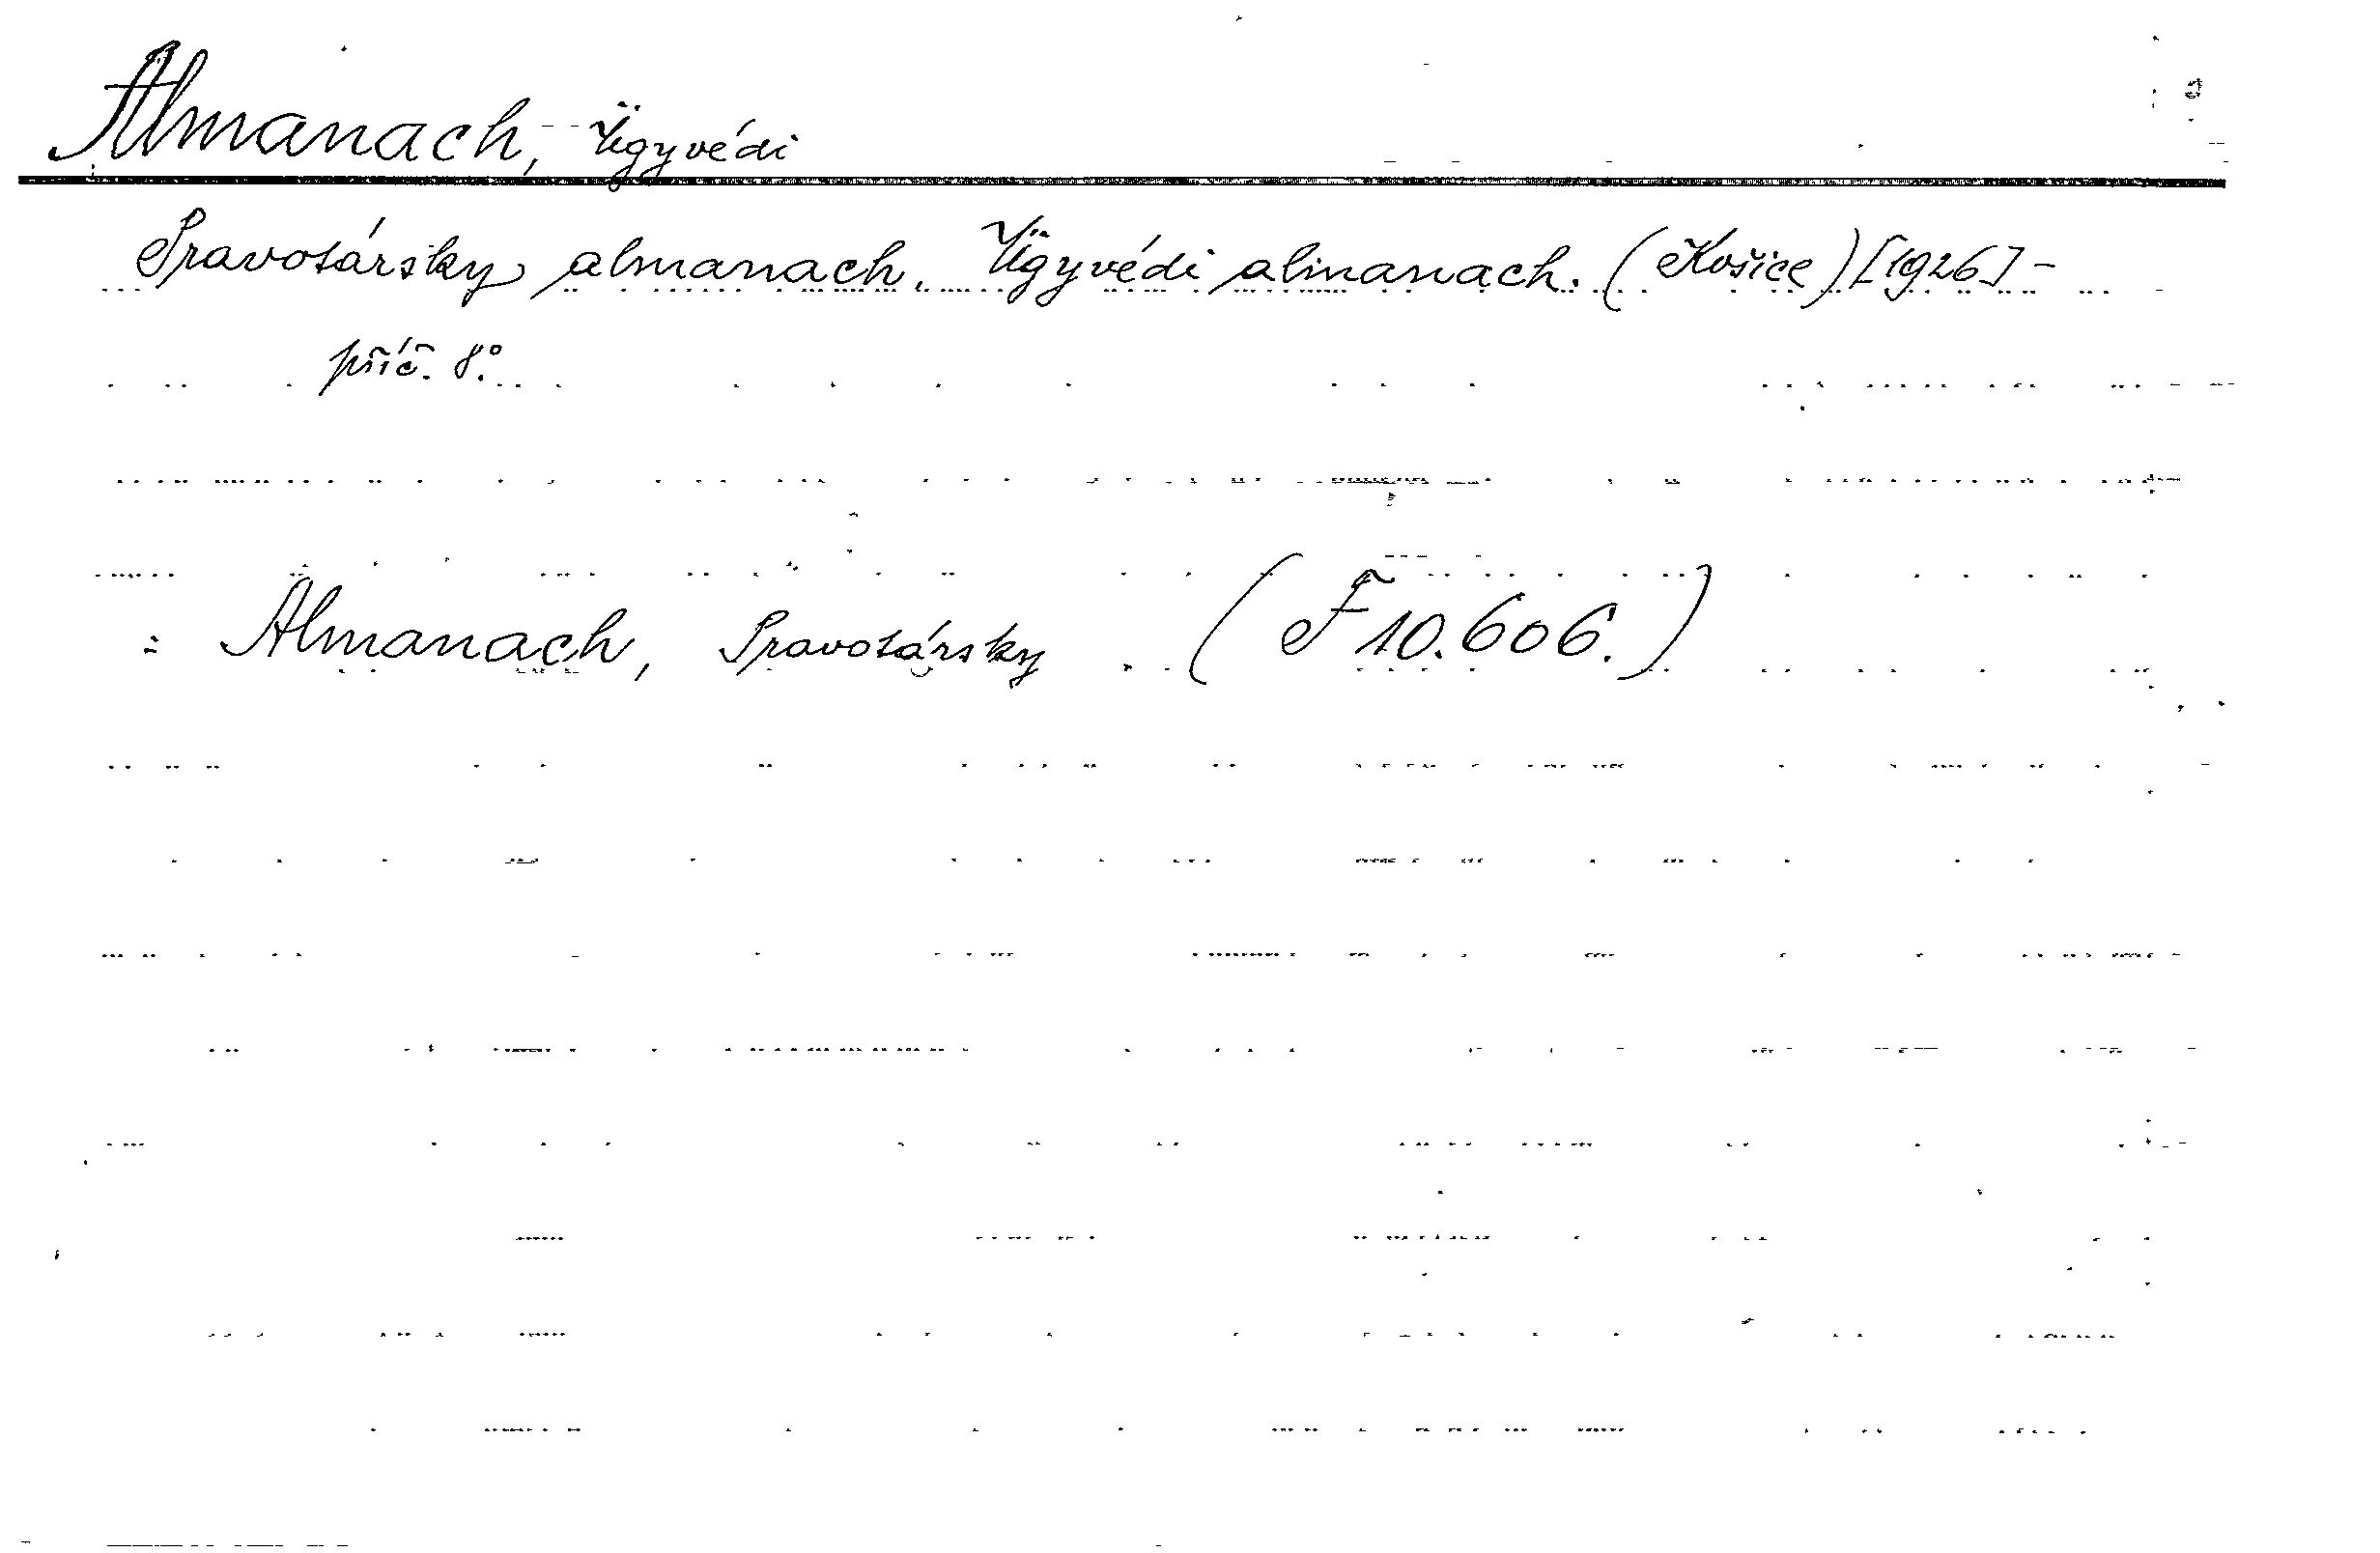 Almanach, Ügyvédi
Pravotársky almanach. Ügyvédi almanach. (Košice) [1926] -
příč. 8°.
= Almanach, Pravotársky (F 10.606.)